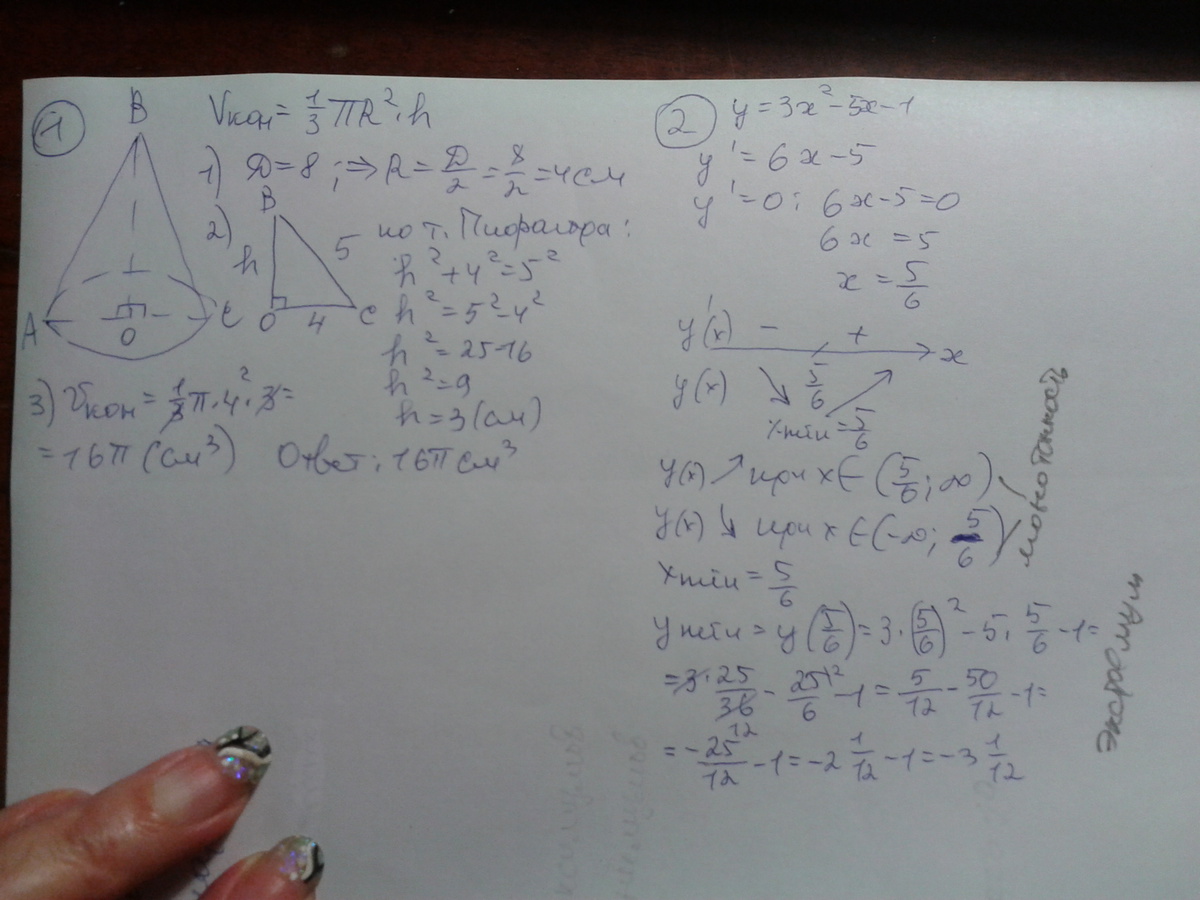 1
B
A
O
C
Vкон = 1/3 πR²·h
1) D = 8 ; ⇒ R = D/2 = 8/2 = 4 см
2)
B
h
5
O
4
C
по т. Пифагора:
h² + 4² = 5²
h² = 5² - 4²
h² = 25-16
h² = 9
h = 3 (см)
3) Vкон = 1/3 π·4²·3 =
= 16π (см³) Ответ: 16π см³
2
y = 3x² - 5x - 1
y' = 6x - 5
y' = 0; 6x - 5 = 0
6x = 5
x = 5/6
y'(x) - + x
y(x) ↘ 5/6 ↗
xmin = 5/6
y(x) ↗ при x ∈ (5/6; ∞)
y(x) ↘ при x ∈ (-∞; 5/6)
монотонность
xmin = 5/6
ymin = y(5/6) = 3·(5/6)² - 5·5/6 - 1 =
= 3·25/36 12 - 25\2/6 - 1 = 5/12 - 50/12 - 1 =
= -25/12 - 1 = -2 1/12 - 1 = -3 1/12
экстремум